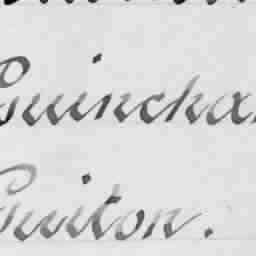 Guincha
Guiton.